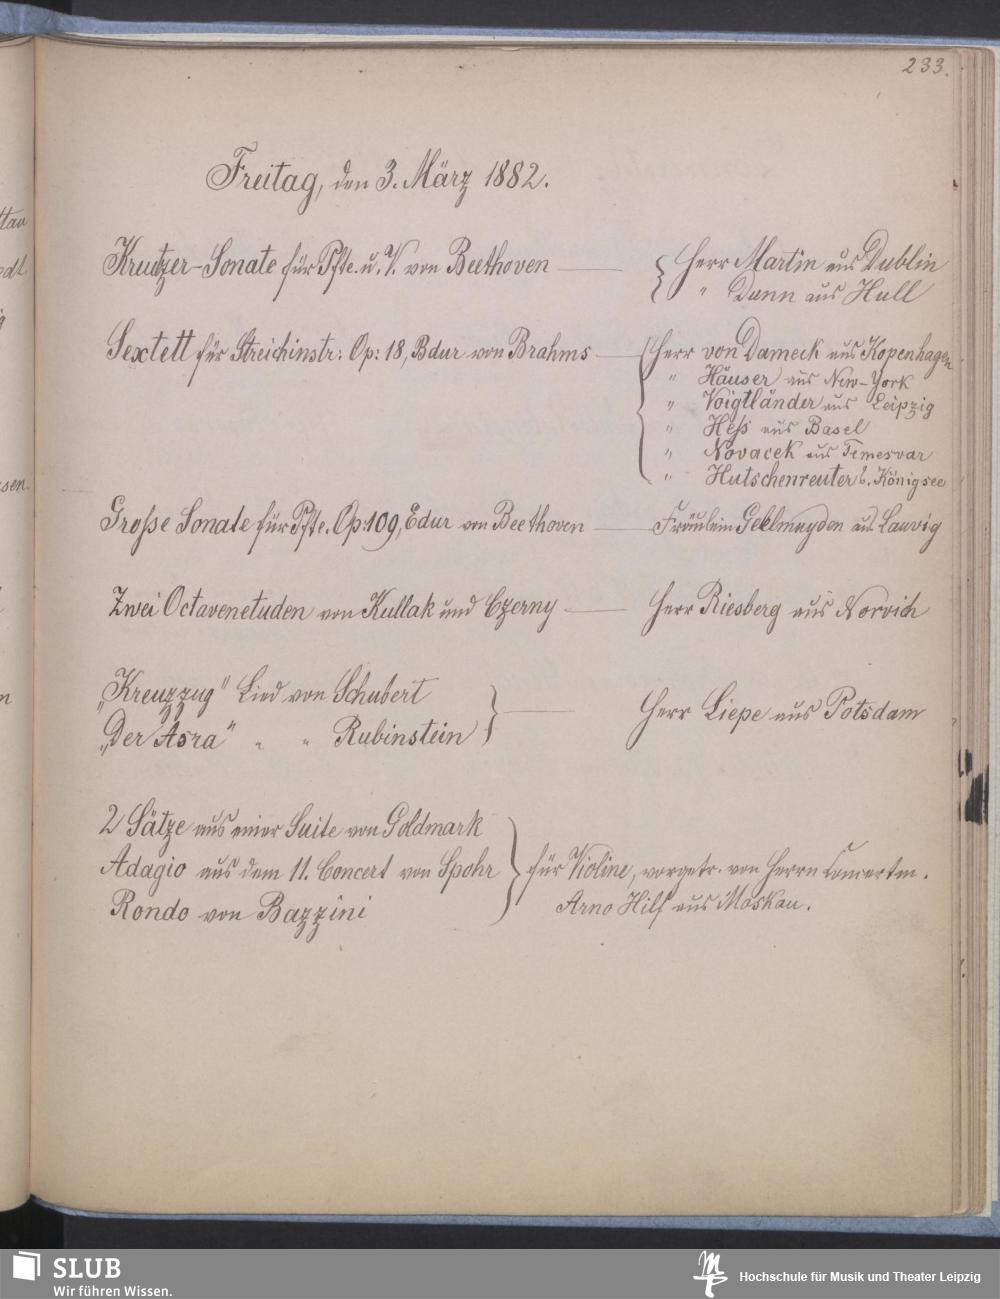 233.
Freitag, den 3. März 1882.
Kreutzer-Sonate für Pfte. u. V. von Beethoven — { Herr Martin aus Dublin
" Dunn aus Hull
Sextett für Streichinstr: Op: 18, Bdur von Brahms — { Herr von Dameck aus Kopenhagen
" Häuser aus New-York
" Voigtländer aus Leipzig
" Heß aus Basel
" Novacek aus Temesvar
" Hutschenreuter b. Königsee
Große Sonate für Pfte. Op: 109, Edur von Beethoven — Fräulein Geelmuyden aus Laurvig
Zwei Octavenetuden von Kullak und Czerny — Herr Riesberg aus Norvich
„Kreuzzug" Lied von Schubert
„Der Asra" " " Rubinstein } — Herr Liepe aus Potsdam
2 Sätze aus einer Suite von Goldmark
Adagio aus dem 11. Concert von Spohr } für Violine, vorgetr. von Herrn Concertm.
Rondo von Bazzini Arno Hilf aus Moskau.
SLUB
Wir führen Wissen.
Hochschule für Musik und Theater Leipzig